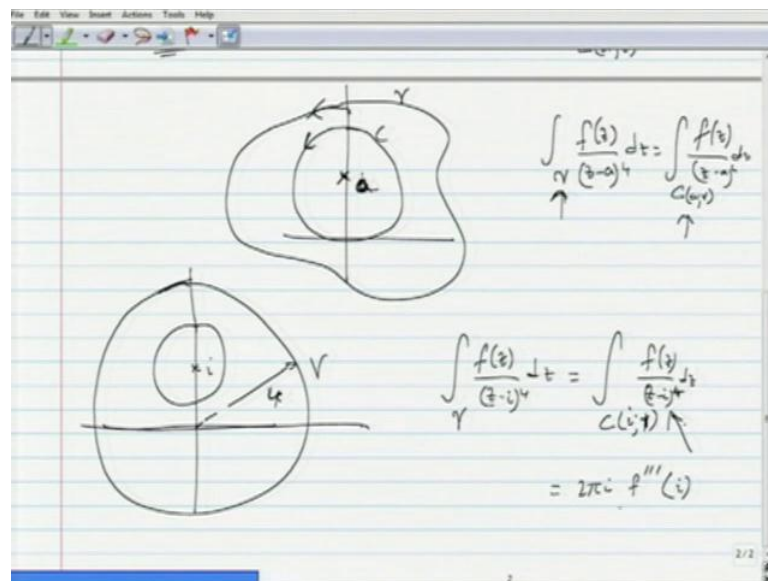 File Edit View Insert Actions Tools Help
γ
C
a
∫_γ f(z)/(z-a)^4 dz = ∫_{C(a,r)} f(z)/(z-a)^4 dz
i
γ
4
∫_γ f(z)/(z-i)^4 dz = ∫_{C(i,1)} f(z)/(z-i)^4 dz
= 2πi f'''(i)
2/2